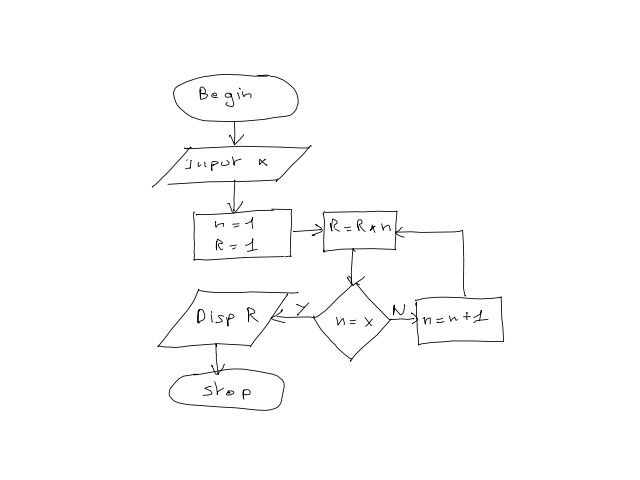 Begin
Input x
n=1
R=1
R=R*n
n=x
Y
N
n=n+1
Disp R
Stop